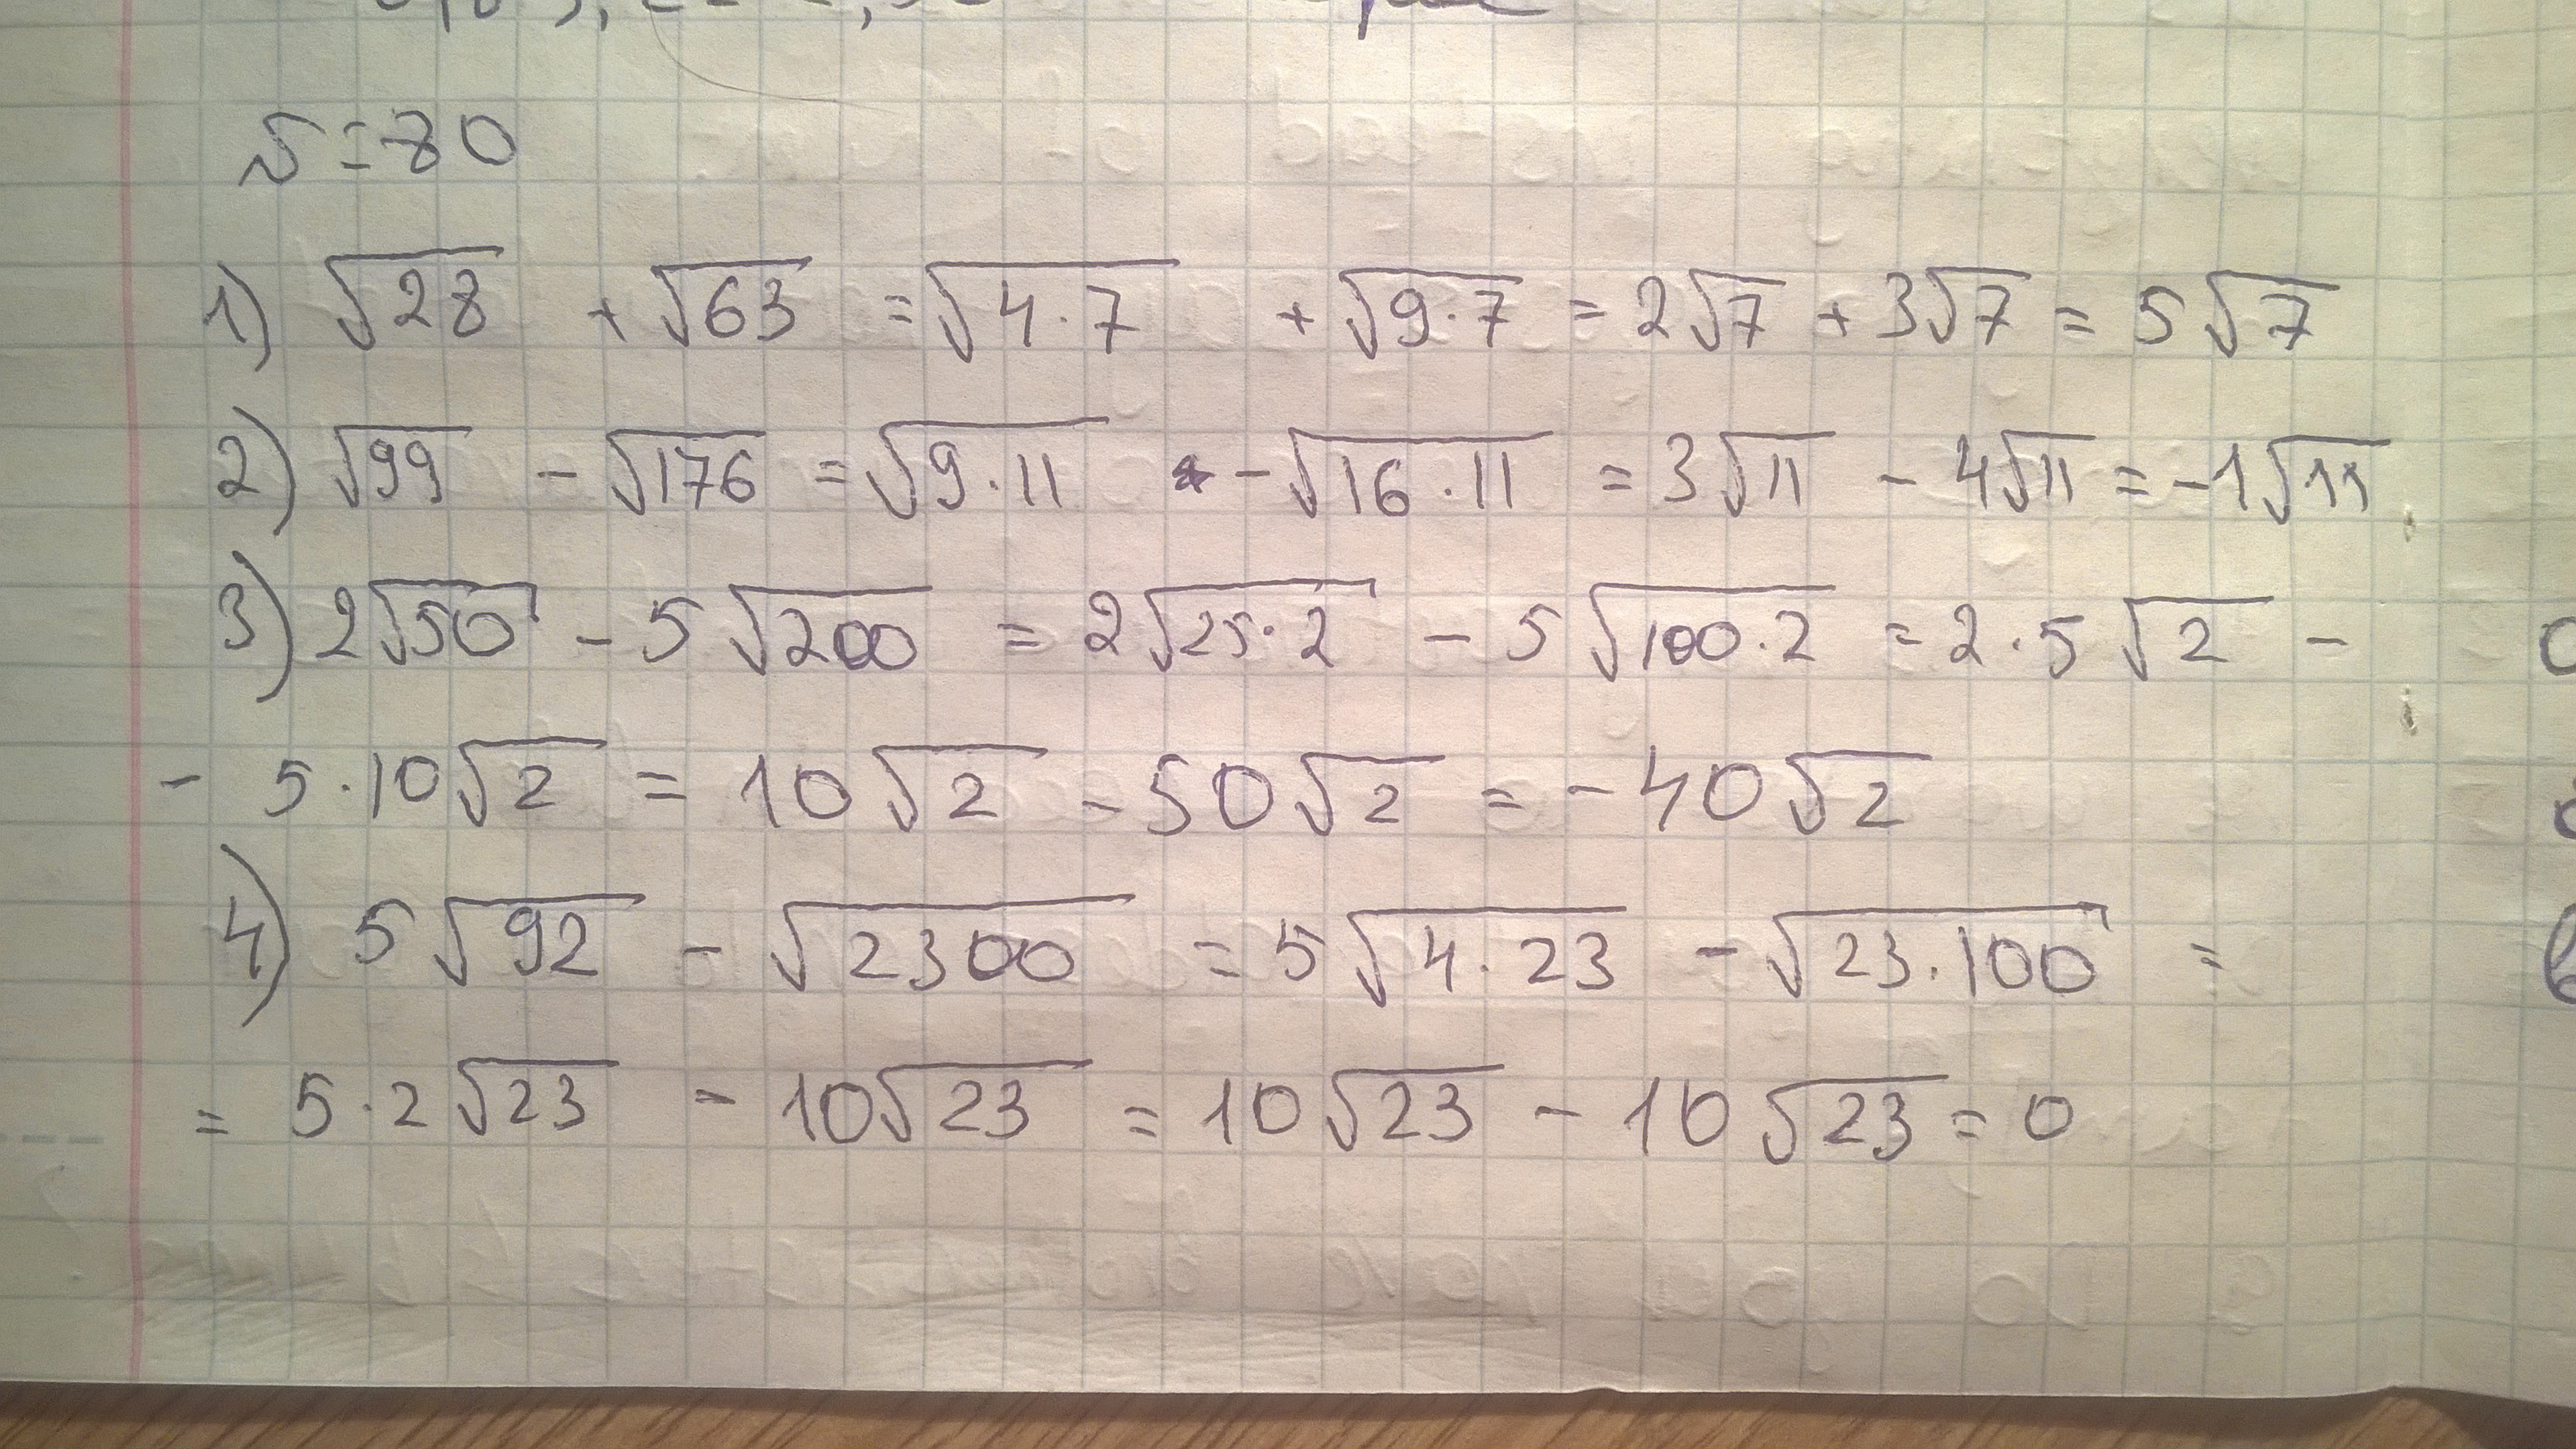 v = 80
1) √28 + √63 = √4·7 + √9·7 = 2√7 + 3√7 = 5√7
2) √99 - √176 = √9·11 - √16·11 = 3√11 - 4√11 = -1√11
3) 2√50 - 5√200 = 2√25·2 - 5√100·2 = 2·5√2 -
- 5·10√2 = 10√2 - 50√2 = -40√2
4) 5√92 - √2300 = 5√4·23 - √23·100 =
= 5·2√23 - 10√23 = 10√23 - 10√23 = 0